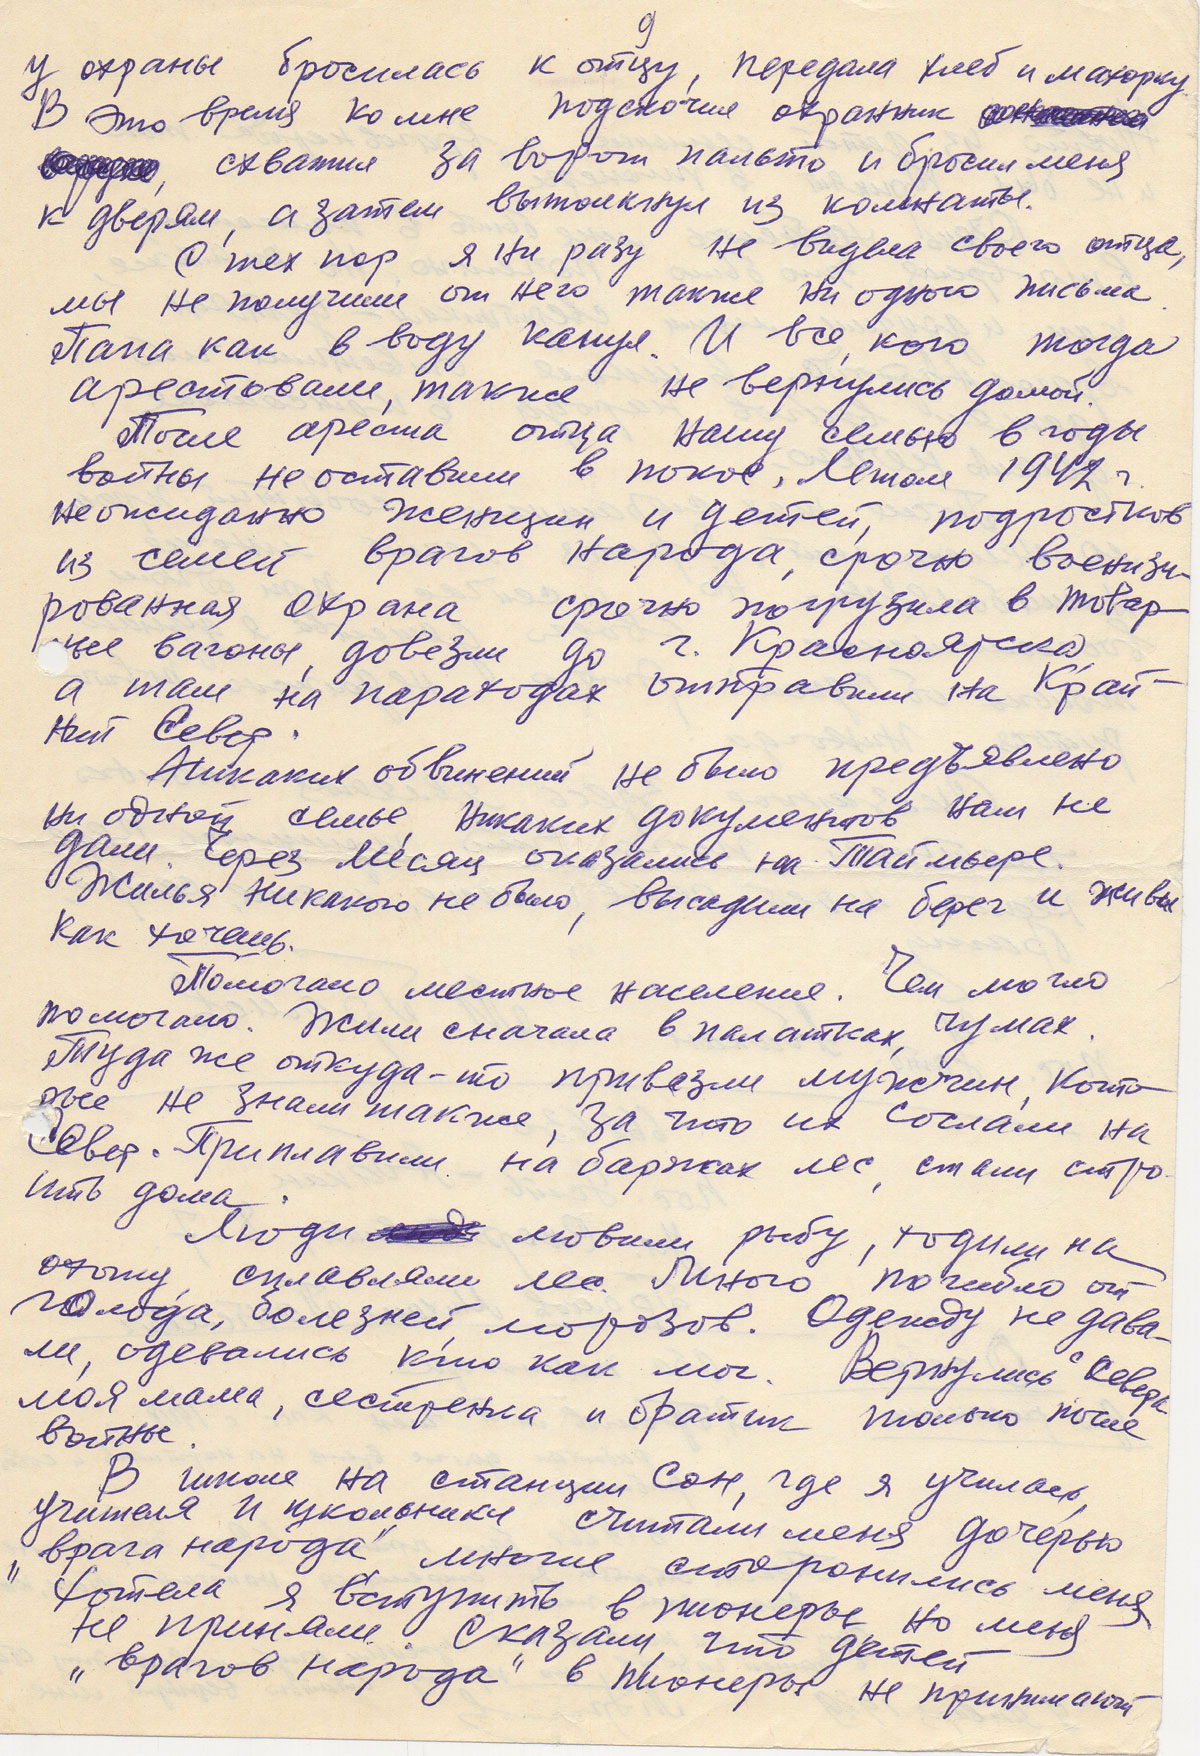 9
у охраны бросилась к отцу, передала хлеб и махорку
В это время ко мне подскочил охранник
, схватил за ворот пальто и бросил меня
к дверям, а затем вытолкнул из комнаты.
С тех пор я ни разу не видела своего отца,
мы не получили от него также ни одного письма.
Папа как в воду канул. И все, кого тогда
арестовали, также не вернулись домой.
После ареста отца нашу семью в годы
войны не оставили в покое. Летом 1942 г.
неожиданно женщин и детей, подростков
из семей врагов народа, срочно военизи-
рованная охрана срочно погрузила в товар-
ные вагоны, довезли до г. Красноярска,
а там на пароходах отправили на Край-
ний Север.
Никаких обвинений не было предъявлено
ни одной семье, никаких документов нам не
дали. Через месяц оказались на Таймыре.
Жилья никакого не было, высадили на берег и живи
как хочешь.
Помогало местное население. Чем могло
помогало. Жили сначала в палатках, чумах.
Туда же откуда-то привезли мужчин, кото-
рые не знали также, за что их сослали на
Север. Приплавили на баржах лес, стали стро-
ить дома.
Люди ловили рыбу, ходили на
охоту, сплавляли лес. Много погибло от
голода, болезней, морозов. Одежду не дава-
ли, одевались кто как мог. Вернулись с Севера
моя мама, сестренка и братик только после
войны.
В школе на станции Сон, где я училась,
учителя и школьники считали меня дочерью
„врага народа" многие сторонились меня
Хотела я вступить в пионеры, но меня
не приняли. Сказали, что детей
„врагов народа" в пионеры не принимают